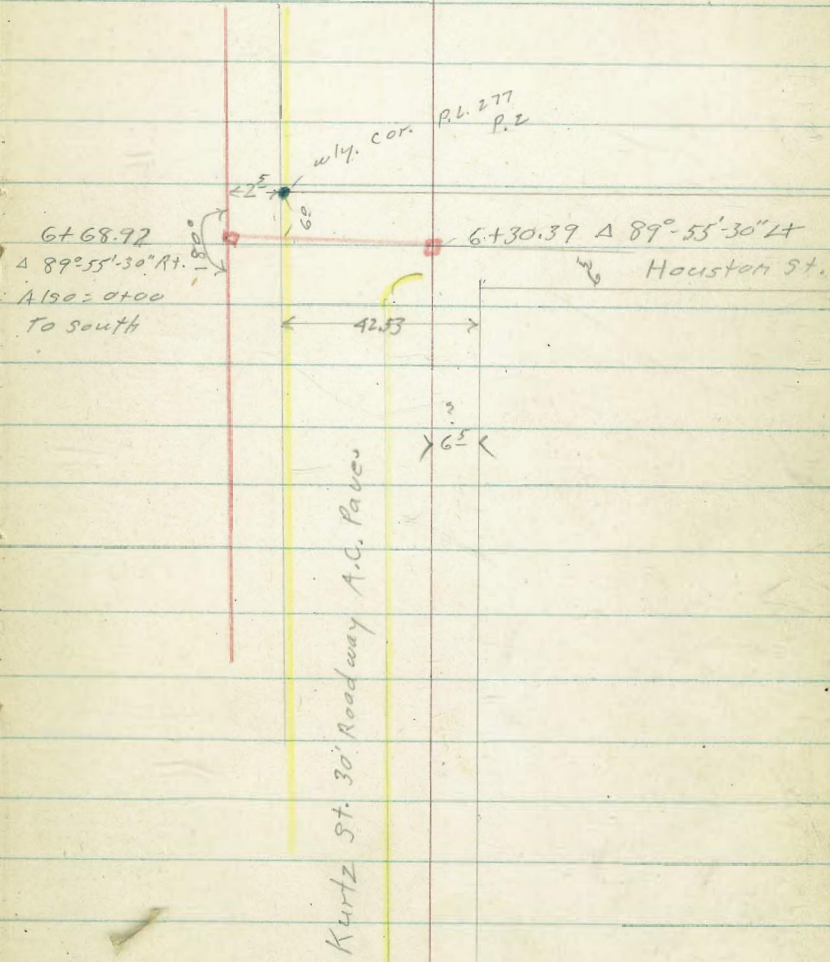 wly. cor. P.L. 277
P. 2
2⁵
6⁰
6+68.92
Δ 89°-55'-30" Rt.
Also = 0+00
To south
180°
6+30.39 Δ 89°-55'-30" Lt
Houston St.
42.53
?
6⁵
Kurtz St. 30' Roadway A.C. Pave.